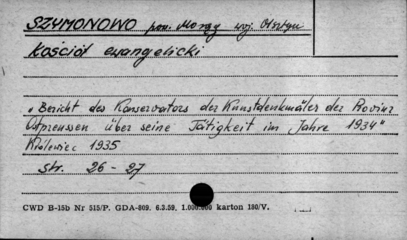 SZYMONOWO pow. Morąg woj. Olsztyn
Kościół ewangelicki
„Bericht des Konservators der Kunstdenkmäler der Provinz
Ostpreussen über seine Tätigkeit im Jahre 1934"
Królewiec 1935
str. 26 - 27
CWD B-15b Nr 515/P. GDA-809. 6.3.59. 1.000.000 karton 180/V.